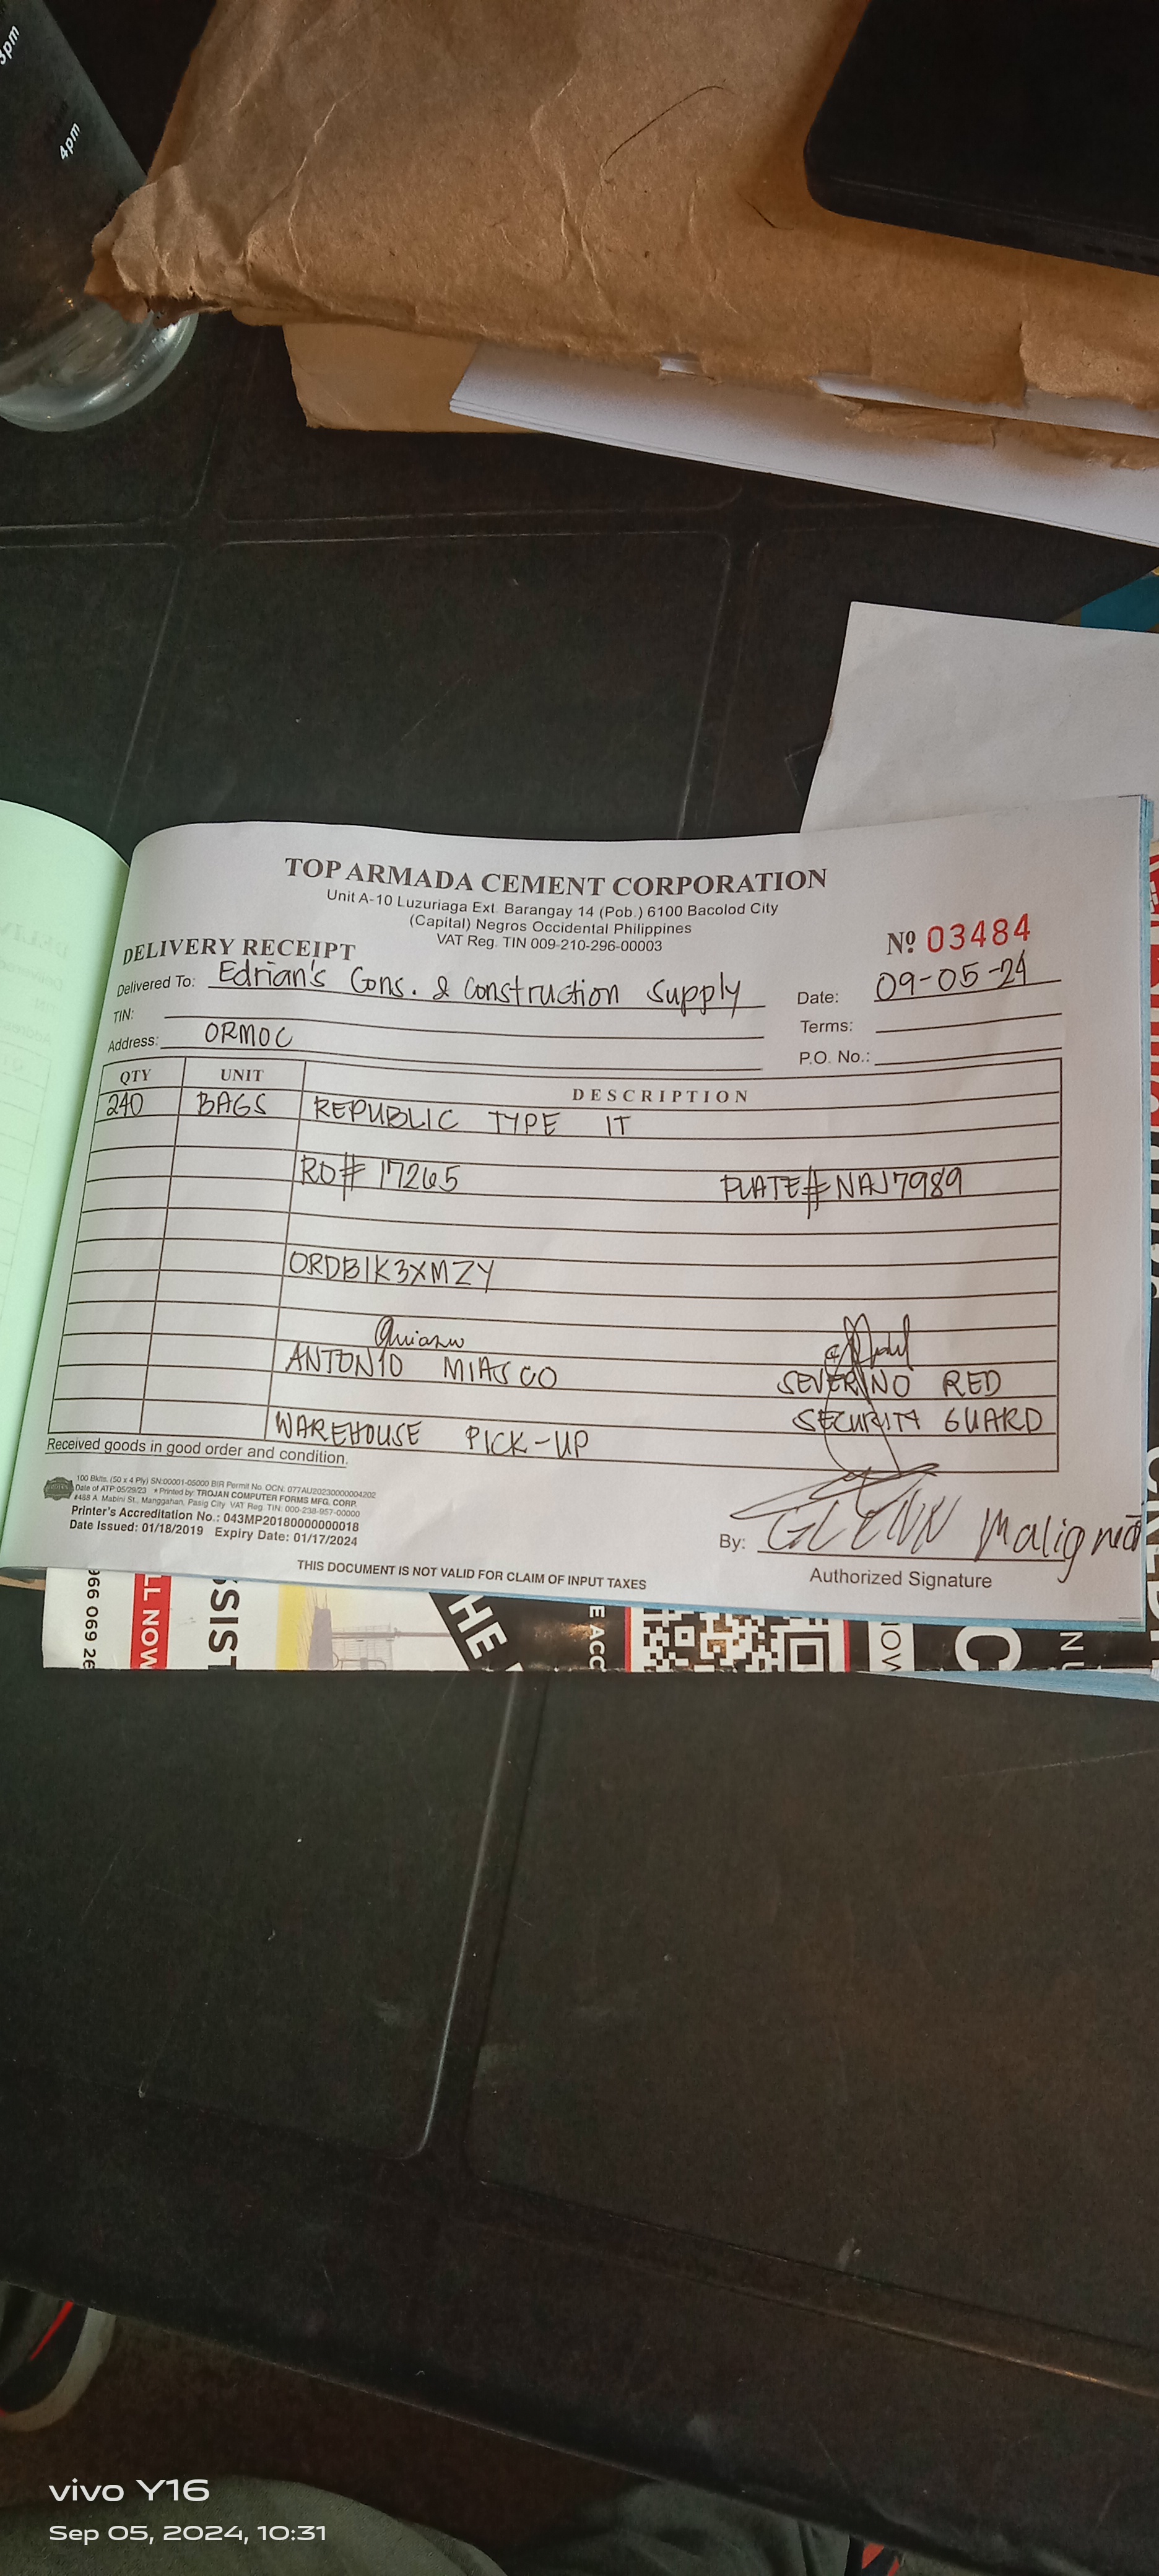 3pm
4pm
TOP ARMADA CEMENT CORPORATION
Unit A-10 Luzuriaga Ext. Barangay 14 (Pob.) 6100 Bacolod City
(Capital) Negros Occidental Philippines
VAT Reg. TIN 009-210-296-00003
DELIVERY RECEIPT
Nº 03484
Delivered To: Edrian's Cons. & Construction Supply
Date: 09-05-24
TIN:
Terms:
Address: ORMOC
P.O. No.:
QTY UNIT DESCRIPTION
240 BAGS REPUBLIC TYPE IT
RO# 17265 PLATE# NAJ7989
ORDB1K3XMZY
ANTONIO MIASCO
SEVERINO RED
SECURITY GUARD
WAREHOUSE PICK-UP
Received goods in good order and condition.
100 Bklts. (50 x 4 Ply) SN:00001-05000 BIR Permit No. OCN: 077AU20230000004202
Date of ATP: 05/29/23 • Printed by: TROJAN COMPUTER FORMS MFG. CORP.
#468 A. Mabini St., Manggahan, Pasig City VAT Reg. TIN: 000-238-957-00000
Printer's Accreditation No.: 043MP20180000000018
Date Issued: 01/18/2019 Expiry Date: 01/17/2024
By: GLENN Maligned
Authorized Signature
THIS DOCUMENT IS NOT VALID FOR CLAIM OF INPUT TAXES
966 069 26
LL NOW
SSIST
HE
E ACC
NOW
C
NU
vivo Y16
Sep 05, 2024, 10:31